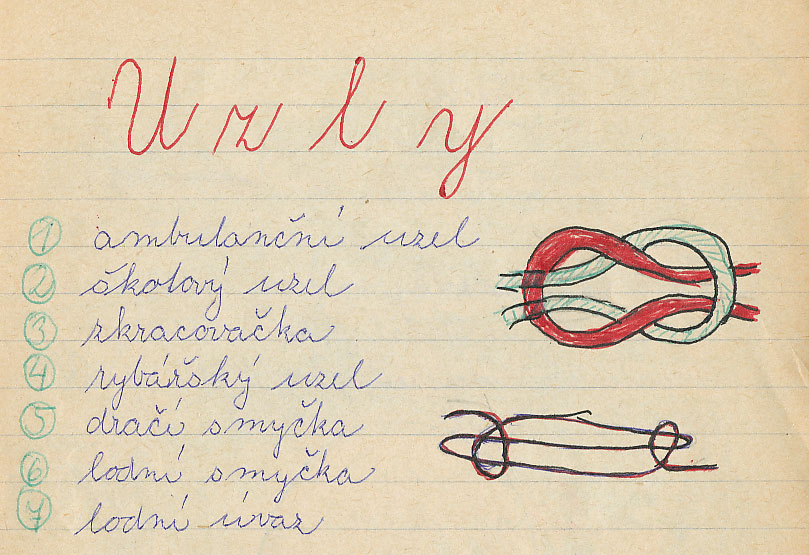 Uzly
1 ambulanční uzel
2 škotový uzel
3 zkracovačka
4 rybářský uzel
5 dračí smyčka
6 lodní smyčka
7 lodní úvaz